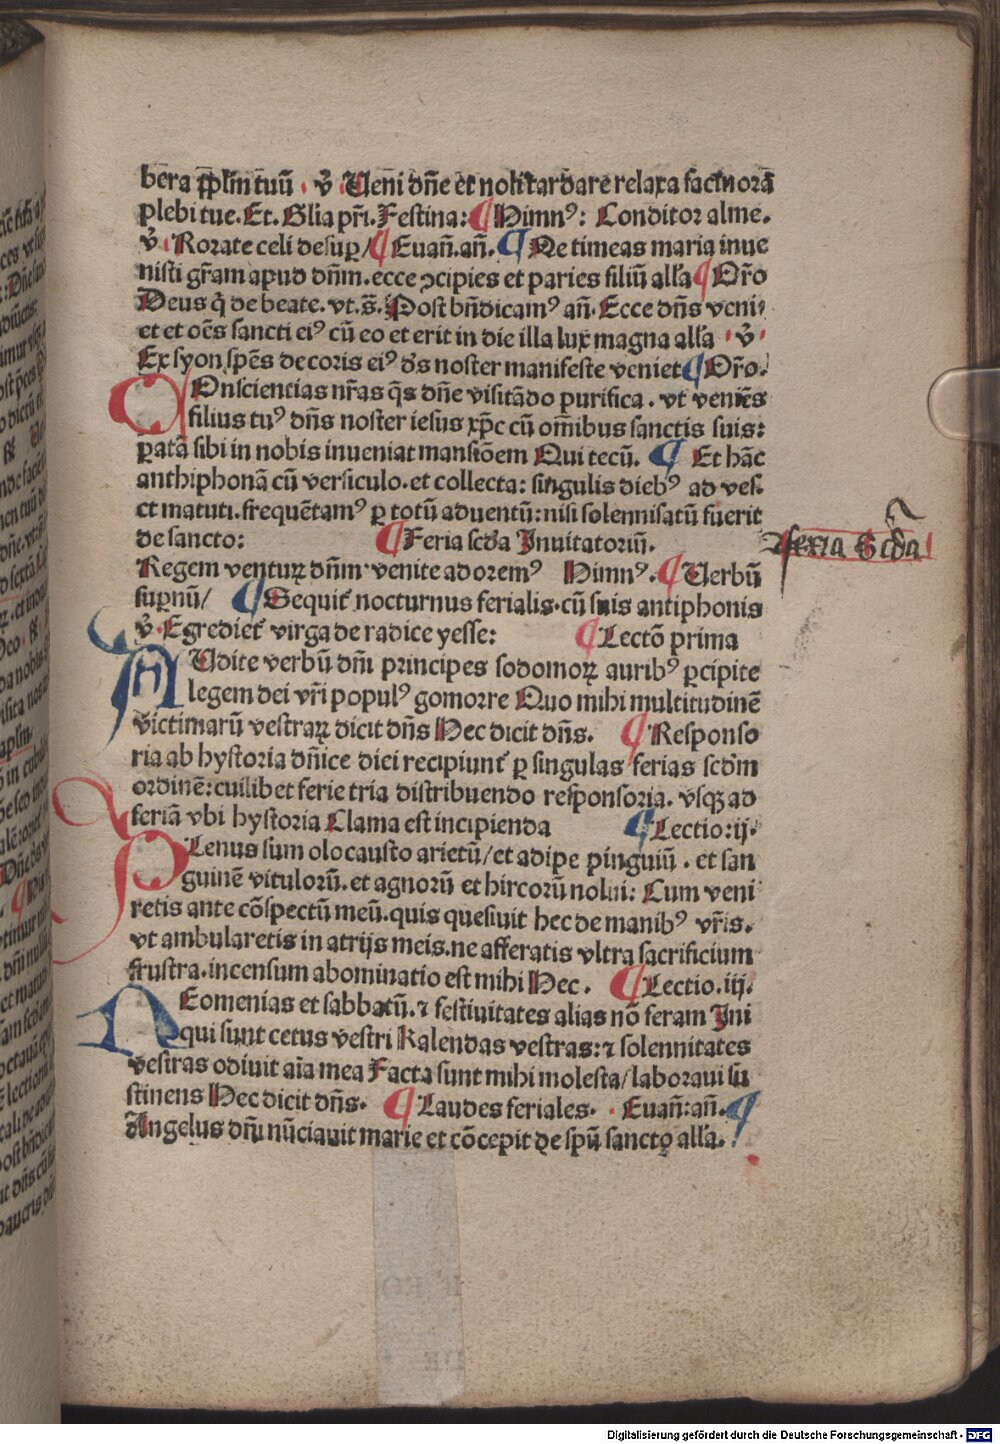 bera ppl̄m tuū · v̄ Ueni dn̄e et noli tardare relaxa facinora
plebi tue. Et. Glīa pr̄i. Festina: ¶ Himnꝰ: Conditor alme.
v̄ Rorate celi desuꝑ/ ¶ Euan̄. an̄. ¶ Ne timeas maria inue
nisti gr̄am apud dn̄m. ecce ↄcipies et paries filiū all'a ¶ Or̄o
Deus q̄ de beate. vt. s̄. Post bn̄dicamꝰ an̄. Ecce dn̄s veni/
et et oēs sancti eiꝰ cū eo et erit in die illa lux magna all'a · v̄ ·
Ex syon spēs decoris eiꝰ d's noster manifeste veniet ¶ Or̄o.
Onsciencias nr̄as q̄s dn̄e visitādo purifica. vt veniēs
filius tuꝰ dn̄s noster iesus xp̄c cū om̄ibus sanctis suis:
ꝑatā sibi in nobis inueniat mansiōem Qui tecū. ¶ Et hāc
anthiphonā cū versiculo. et collecta: singulis diebꝰ ad ves.
et matuti. frequētamꝰ ꝑ totū aduentū: nisi solennisatū fuerit
de sancto: ¶ Feria scd̄a Inuitatoriū.
feria Scd̄a
Regem venturꝝ dn̄m venite adoremꝰ Himnꝰ. ¶ Uerbū
suꝑnū/ ¶ Sequit̄ nocturnus ferialis. cū suis antiphonis
v̄ · Egrediet̄ virga de radice yesse: ¶ Lectō prima
AUdite verbū dn̄i principes sodomoꝝ auribꝰ ꝑcipite
legem dei vr̄i populꝰ gomorre Quo mihi multitudinē
victimarū vestraꝝ dicit dn̄s Hec dicit dn̄s. ¶ Responso
ria ab hystoria dn̄ice diei recipiunt̄ ꝑ singulas ferias scd̄m
ordinē: cuilibet ferie tria distribuendo responsoria. vsqꝫ ad
feriā vbi hystoria Clama est incipienda ¶ Lectio: ij.
PLenus sum olocausto arietū/ et adipe pinguiū. et san
guinē vitulorū. et agnorū et hircorū nolui: Cum veni
retis ante cōspectū meū. quis quesiuit hec de manibꝰ vr̄is.
vt ambularetis in atrijs meis. ne afferatis vltra sacrificium
frustra. incensum abominatio est mihi Hec. ¶ Lectio. iij.
NEomenias et sabbatū. ⁊ festiuitates alias nō feram Ini
qui sunt cetus vestri Kalendas vestras: ⁊ solennitates
vestras odiuit aīa mea Facta sunt mihi molesta/ laboraui su
stinens Hec dicit dn̄s. ¶ Laudes feriales. · Euan̄: an̄. ¶
Angelus dn̄i nūciauit marie et cōcepit de spū sancto all'a.
Digitalisierung gefördert durch die Deutsche Forschungsgemeinschaft - DFG